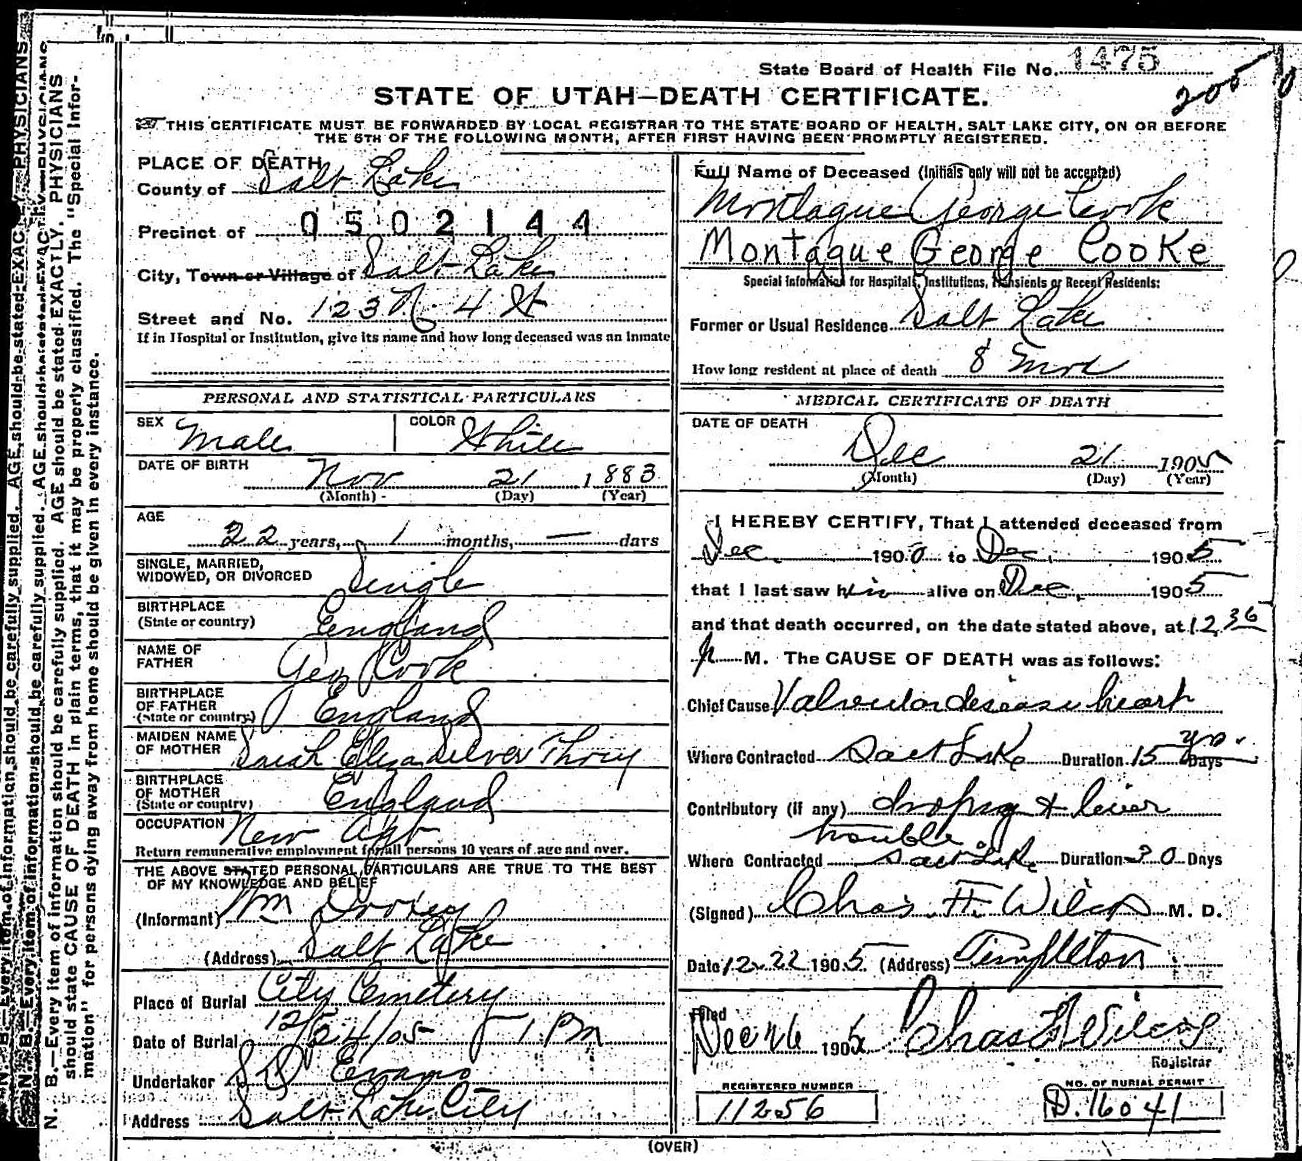 State Board of Health File No. 1475
205
STATE OF UTAH—DEATH CERTIFICATE.
THIS CERTIFICATE MUST BE FORWARDED BY LOCAL REGISTRAR TO THE STATE BOARD OF HEALTH, SALT LAKE CITY, ON OR BEFORE
THE 5TH OF THE FOLLOWING MONTH, AFTER FIRST HAVING BEEN PROMPTLY REGISTERED.
PLACE OF DEATH
County of Salt Lake
Precinct of 0502144
City, Town or Village of Salt Lake
Street and No. 123 N 4 St
If in Hospital or Institution, give its name and how long deceased was an inmate
PERSONAL AND STATISTICAL PARTICULARS
SEX Male COLOR White
DATE OF BIRTH Nov 21 1883
(Month) (Day) (Year)
AGE
22 years, 1 months, — days
SINGLE, MARRIED,
WIDOWED, OR DIVORCED Single
BIRTHPLACE
(State or country) England
NAME OF
FATHER Geo Cook
BIRTHPLACE
OF FATHER
(State or country) England
MAIDEN NAME
OF MOTHER Sarah Eliza Silver
BIRTHPLACE
OF MOTHER
(State or country) England
OCCUPATION News Agt
Return remunerative employment for all persons 10 years of age and over.
THE ABOVE STATED PERSONAL PARTICULARS ARE TRUE TO THE BEST
OF MY KNOWLEDGE AND BELIEF
(Informant) Wm
(Address) Salt Lake
Place of Burial City Cemetery
Date of Burial 12/24/05 1. PM
Undertaker S D Evans
Address Salt Lake City
Full Name of Deceased (Initials only will not be accepted)
Montague George Cook
Montague George Cooke
Special Information for Hospitals, Institutions, Transients or Recent Residents:
Former or Usual Residence Salt Lake
How long resident at place of death 8 Mos
MEDICAL CERTIFICATE OF DEATH
DATE OF DEATH
Dec 21 1905
(Month) (Day) (Year)
I HEREBY CERTIFY, That I attended deceased from
Dec 1900 to Dec. 1905
that I last saw him alive on Dec. 1905
and that death occurred, on the date stated above, at 12 36
p M. The CAUSE OF DEATH was as follows:
Chief Cause Valvular disease heart
Where Contracted Salt Lake Duration 15 yrs. Days
Contributory (if any) dropsy & liver
trouble
Where Contracted Salt Lake Duration 30 Days
(Signed) Chas. F. Wilcox M. D.
Date 12-22 1905 (Address) Templeton
Filed
Dec 26 1905 Chas F Wilcox
Registrar
REGISTERED NUMBER
11256
NO. OF BURIAL PERMIT
D. 16041
(OVER)
N. B.—Every item of information should be carefully supplied. AGE should be stated EXACTLY. PHYSICIANS
should state CAUSE OF DEATH in plain terms, that it may be properly classified. The "Special Infor-
mation" for persons dying away from home should be given in every instance.